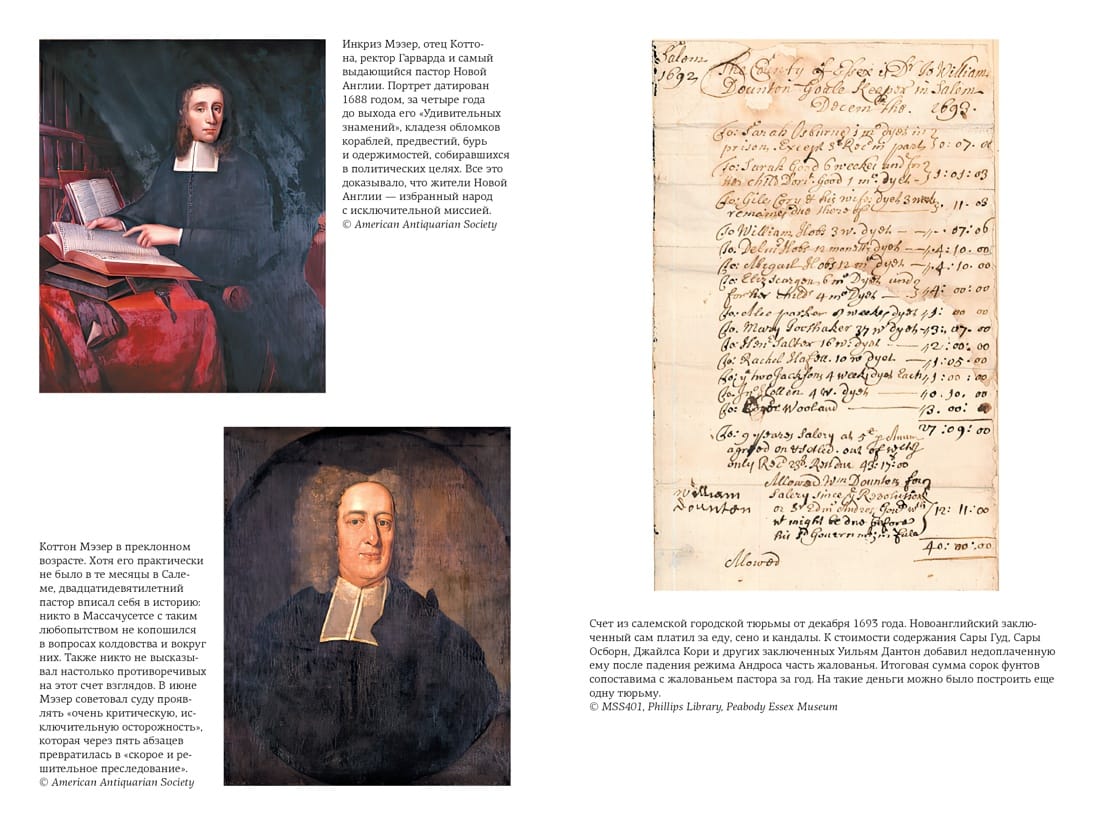 Инкриз Мэзер, отец Котто-
на, ректор Гарварда и самый
выдающийся пастор Новой
Англии. Портрет датирован
1688 годом, за четыре года
до выхода его «Удивительных
знамений», кладезя обломков
кораблей, предвестий, бурь
и одержимостей, собиравшихся
в политических целях. Все это
доказывало, что жители Новой
Англии — избранный народ
с исключительной миссией.
© American Antiquarian Society
Коттон Мэзер в преклонном
возрасте. Хотя его практически
не было в те месяцы в Сале-
ме, двадцатидевятилетний
пастор вписал себя в историю:
никто в Массачусетсе с таким
любопытством не копошился
в вопросах колдовства и вокруг
них. Также никто не высказы-
вал настолько противоречивых
на этот счет взглядов. В июне
Мэзер советовал суду прояв-
лять «очень критическую, ис-
ключительную осторожность»,
которая через пять абзацев
превратилась в «скорое и ре-
шительное преследование».
© American Antiquarian Society
Salem
1692
The County of Essex is Dr To William
Dounton Goale Keaper in Salem
Decem the. 1693.
To: Sarah Osburne
prison. Except
To: Sarah Good 6 weekes and for
her child Good 1 mo. dyet - 1: 01: 03
To: Giles Cory & his wife dyet 3 weeks
11. 03
To William Hobs 3 w. dyet 07: 06
To. Hobs 12 months dyet 4: 10. 00
To: Abigail Hobs 12 mo dyet 4: 10. 00
To: Eliz 6 mo Dyet and
for her child 4 mo Dyet 4: 00: 00
To: Alce parker weekes dyet 1: 00
To. Mary 37 w dyet 3: 07. 00
To: Salter 16 w: dyet 2: 00: 00
To: Rachel 10 w dyet. 1: 05: 00
two Jacksons 4 weeks dyet Each 1: 00:
4 w. dyet 0. 10. 00
To: Wooland 3. 00: 00
27: 09: 00
To: 9 yeares Salery at 5
agreed on
only
Allowed Wm Dounton for
Salery since ye Revolution
or Sr Edm Andros 12: 11: 00
wt might be due before
William
Dounton
40: 00: 00
Alowed
Счет из салемской городской тюрьмы от декабря 1693 года. Новоанглийский заклю-
ченный сам платил за еду, сено и кандалы. К стоимости содержания Сары Гуд, Сары
Осборн, Джайлса Кори и других заключенных Уильям Дантон добавил недоплаченную
ему после падения режима Андроса часть жалованья. Итоговая сумма сорок фунтов
сопоставима с жалованьем пастора за год. На такие деньги можно было построить еще
одну тюрьму.
© MSS401, Phillips Library, Peabody Essex Museum